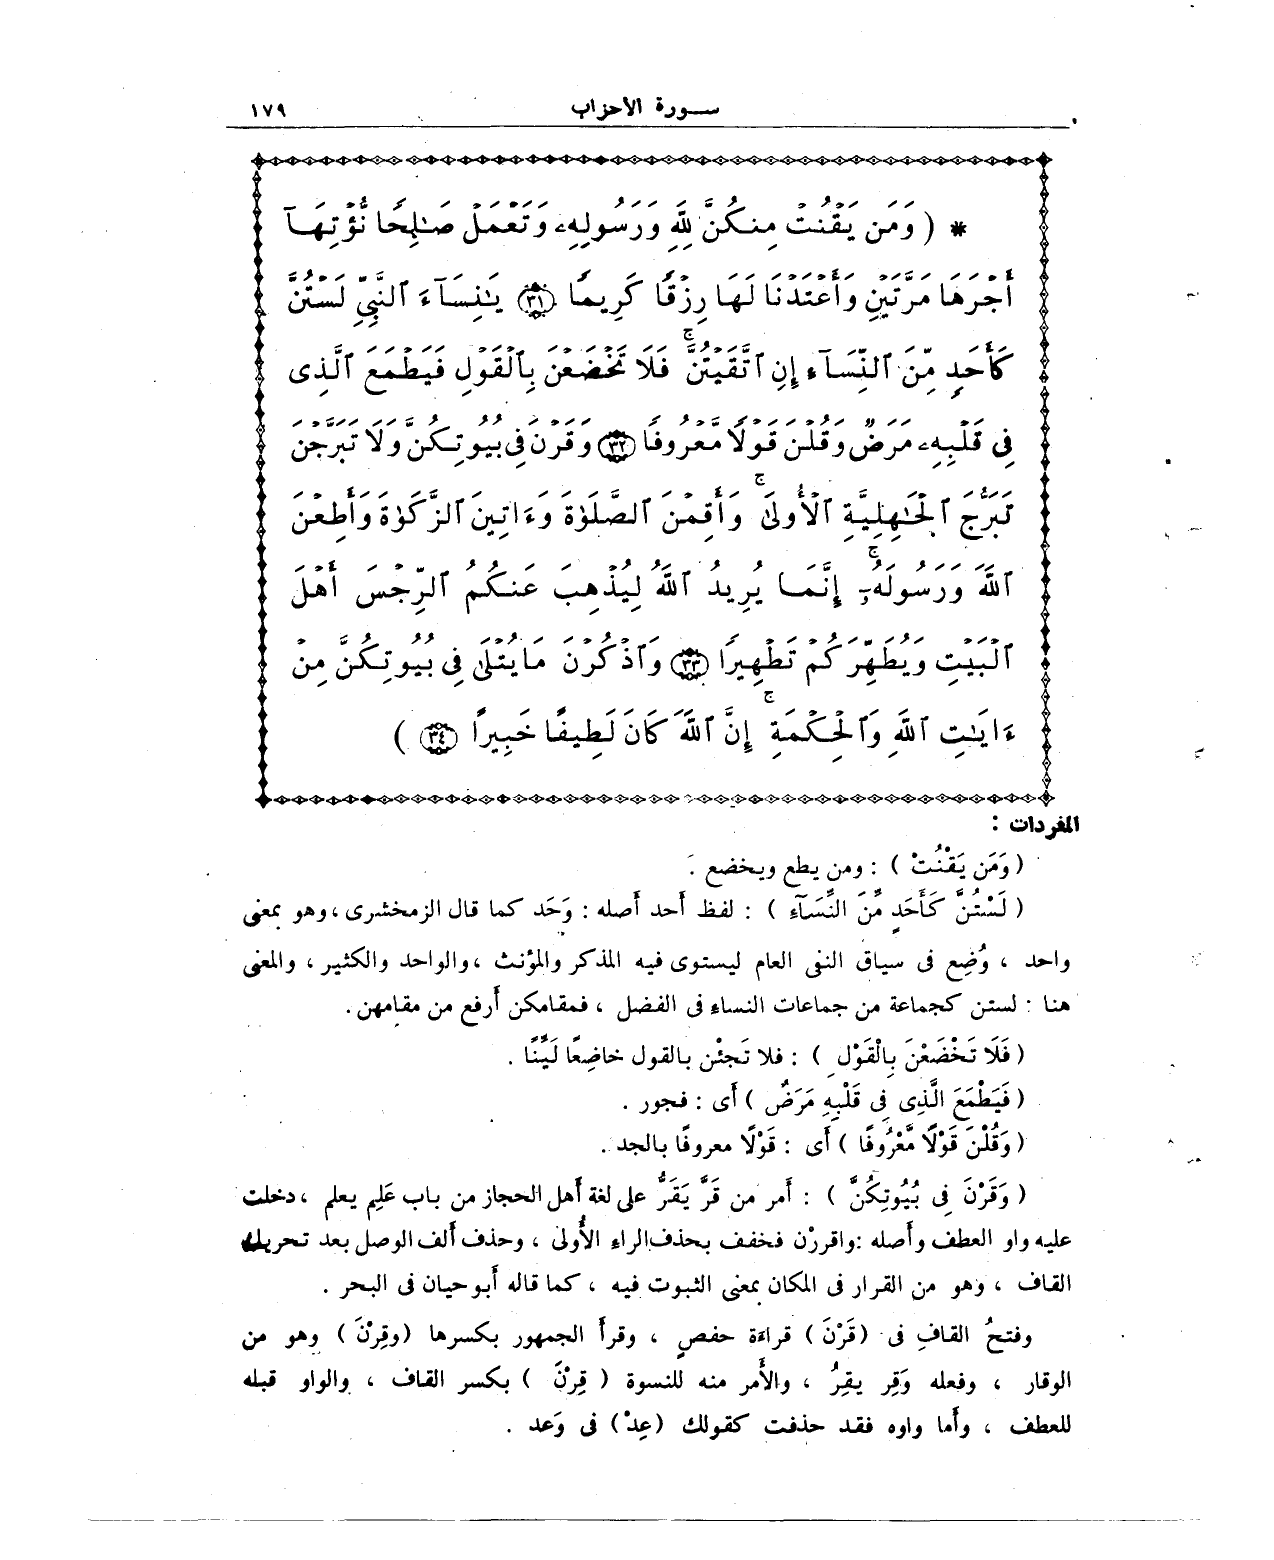 سورة الأحزاب ١٧٩
* ( وَمَن يَقْنُتْ مِنكُنَّ لِلَّهِ وَرَسُولِهِۦ وَتَعْمَلْ صَـٰلِحًا نُّؤْتِهَآ
أَجْرَهَا مَرَّتَيْنِ وَأَعْتَدْنَا لَهَا رِزْقًا كَرِيمًا ﴿٣١﴾ يَـٰنِسَآءَ ٱلنَّبِىِّ لَسْتُنَّ
كَأَحَدٍ مِّنَ ٱلنِّسَآءِ إِنِ ٱتَّقَيْتُنَّ ۚ فَلَا تَخْضَعْنَ بِٱلْقَوْلِ فَيَطْمَعَ ٱلَّذِى
فِى قَلْبِهِۦ مَرَضٌ وَقُلْنَ قَوْلًا مَّعْرُوفًا ﴿٣٢﴾ وَقَرْنَ فِى بُيُوتِكُنَّ وَلَا تَبَرَّجْنَ
تَبَرُّجَ ٱلْجَـٰهِلِيَّةِ ٱلْأُولَىٰ ۚ وَأَقِمْنَ ٱلصَّلَوٰةَ وَءَاتِينَ ٱلزَّكَوٰةَ وَأَطِعْنَ
ٱللَّهَ وَرَسُولَهُۥٓ ۚ إِنَّمَا يُرِيدُ ٱللَّهُ لِيُذْهِبَ عَنكُمُ ٱلرِّجْسَ أَهْلَ
ٱلْبَيْتِ وَيُطَهِّرَكُمْ تَطْهِيرًا ﴿٣٣﴾ وَٱذْكُرْنَ مَا يُتْلَىٰ فِى بُيُوتِكُنَّ مِنْ
ءَايَـٰتِ ٱللَّهِ وَٱلْحِكْمَةِ ۚ إِنَّ ٱللَّهَ كَانَ لَطِيفًا خَبِيرًا ﴿٣٤﴾ )
المفردات :
( وَمَن يَقْنُتْ ) : ومن يطع ويخضع .
( لَسْتُنَّ كَأَحَدٍ مِّنَ النِّسَآءِ ) : لفظ أحد أصله : وَحَد كما قال الزمخشرى ، وهو بمعنى
واحد ، وُضِع فى سياق النفى العام ليستوى فيه المذكر والمؤنث ، والواحد والكثير ، والمعنى
هنا : لستن كجماعة من جماعات النساء فى الفضل ، فمقامكن أرفع من مقامهن .
( فَلَا تَخْضَعْنَ بِالْقَوْلِ ) : فلا تَجئْن بالقول خاضِعًا لَيِّنًا .
( فَيَطْمَعَ الَّذِى فِى قَلْبِهِ مَرَضٌ ) أى : فجور .
( وَقُلْنَ قَوْلًا مَّعْرُوفًا ) أى : قَوْلًا معروفًا بالجد .
( وَقَرْنَ فِى بُيُوتِكُنَّ ) : أمر من قَرَّ يَقَرُّ على لغة أهل الحجاز من باب عَلِم يعلم ، دخلت
عليه واو العطف وأصله : واقررْن فخفف بحذف الراء الأُولى ، وحذف ألف الوصل بعد تحريك
القاف ، وهو من القرار فى المكان بمعنى الثبوت فيه ، كما قاله أبو حيان فى البحر .
وفتحُ القافِ فى ( قَرْنَ ) قراءة حفصٍ ، وقرأ الجمهور بكسرها ( وقِرْنَ ) وهو من
الوقار ، وفعله وَقِر يقِرُ ، والأمر منه للنسوة ( قِرْنَ ) بكسر القاف ، والواو قبله
للعطف ، وأما واوه فقد حذفت كقولك ( عِدْ ) فى وَعد .